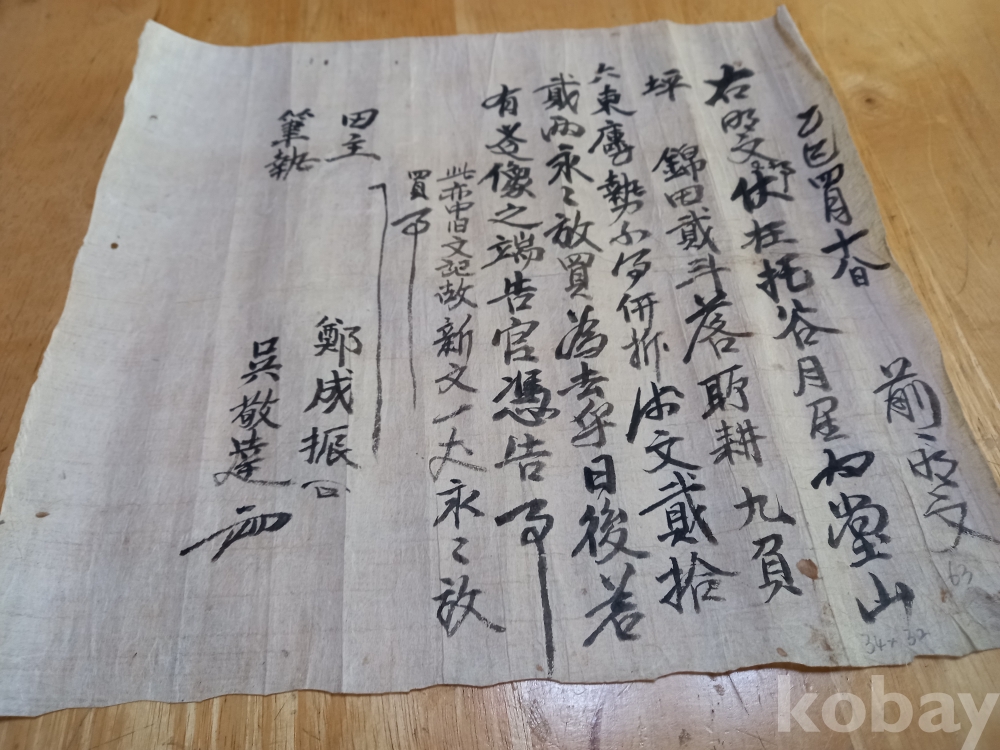 乙巳四月十八日 前明文
右明文伏在托谷月星內堂山
坪 錦田貳斗落 所耕九負
六束廤勢不得 価折 文貳拾
貳兩永〻放買為去乎日後若
有 像之端告官憑告事
此亦中旧文記故新文一丈永〻放
買事
田主 鄭成振
筆執 吳敬達
63
34 x 32
kobay